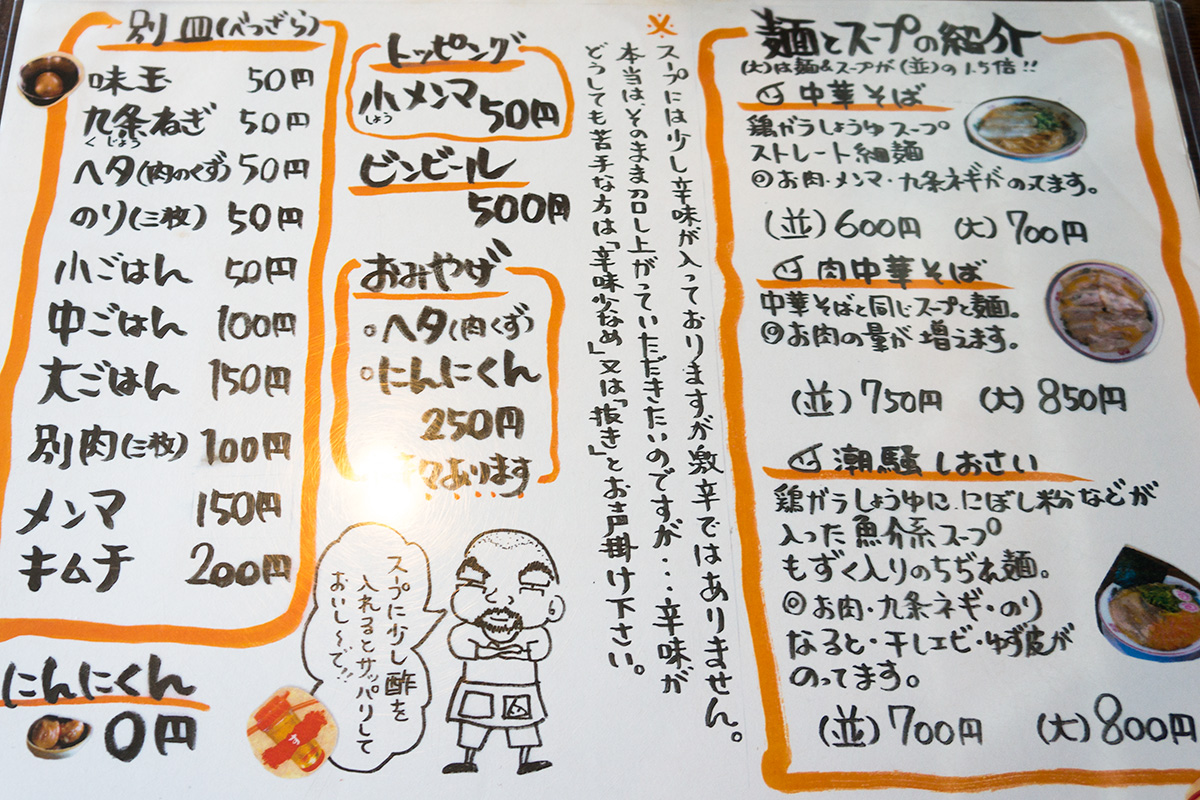 別皿(べつざら)
味玉 50円
九条ねぎ 50円
くじょう
ヘタ(肉のくず) 50円
のり(三枚) 50円
小ごはん 50円
中ごはん 100円
大ごはん 150円
別肉(三枚) 100円
メンマ 150円
キムチ 200円
にんにくん
0円
トッピング
小メンマ
しょう
50円
ビンビール
500円
おみやげ
○ヘタ(肉くず)
○にんにくん
250円
々あります
スープに少し酢を
入れるとサッパリして
おいし〜で!!
※
スープには少し辛味が入っておりますが激辛ではありません。
本当は、そのまま召し上がっていただきたいのですが・・・辛味が
どうしても苦手な方は「辛味少なめ」又は「抜き」とお声掛け下さい。
麺とスープの紹介
(大)は麺&スープが(並)の1.5倍!!
中華そば
鶏ガラしょうゆスープ
ストレート細麺
◎お肉・メンマ・九条ネギがのってます。
(並)600円 (大)700円
肉中華そば
中華そばと同じスープと麺。
◎お肉の量が増えます。
(並)750円 (大)850円
潮騒 しおさい
鶏ガラしょうゆに、にぼし粉などが
入った魚介系スープ
もずく入りのちぢれ麺。
◎お肉・九条ネギ・のり
なると・干しエビ・ゆず皮が
のってます。
(並)700円 (大)800円